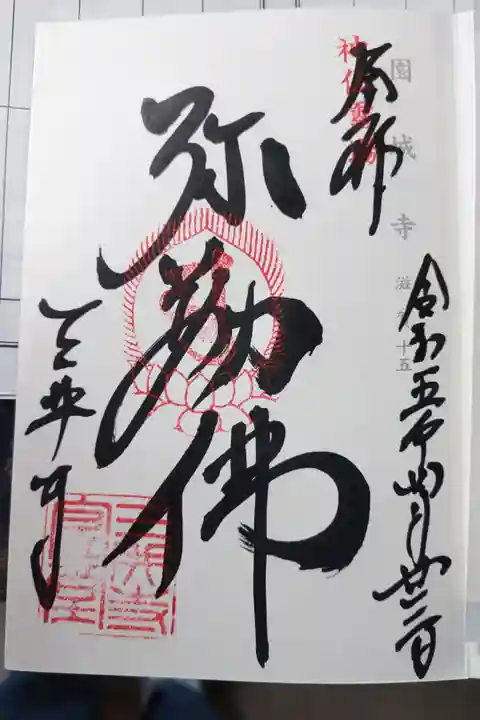 奉拝
神仏霊場
園城寺
滋賀十五
令和五年四月廿二日
弥勒佛
三井寺